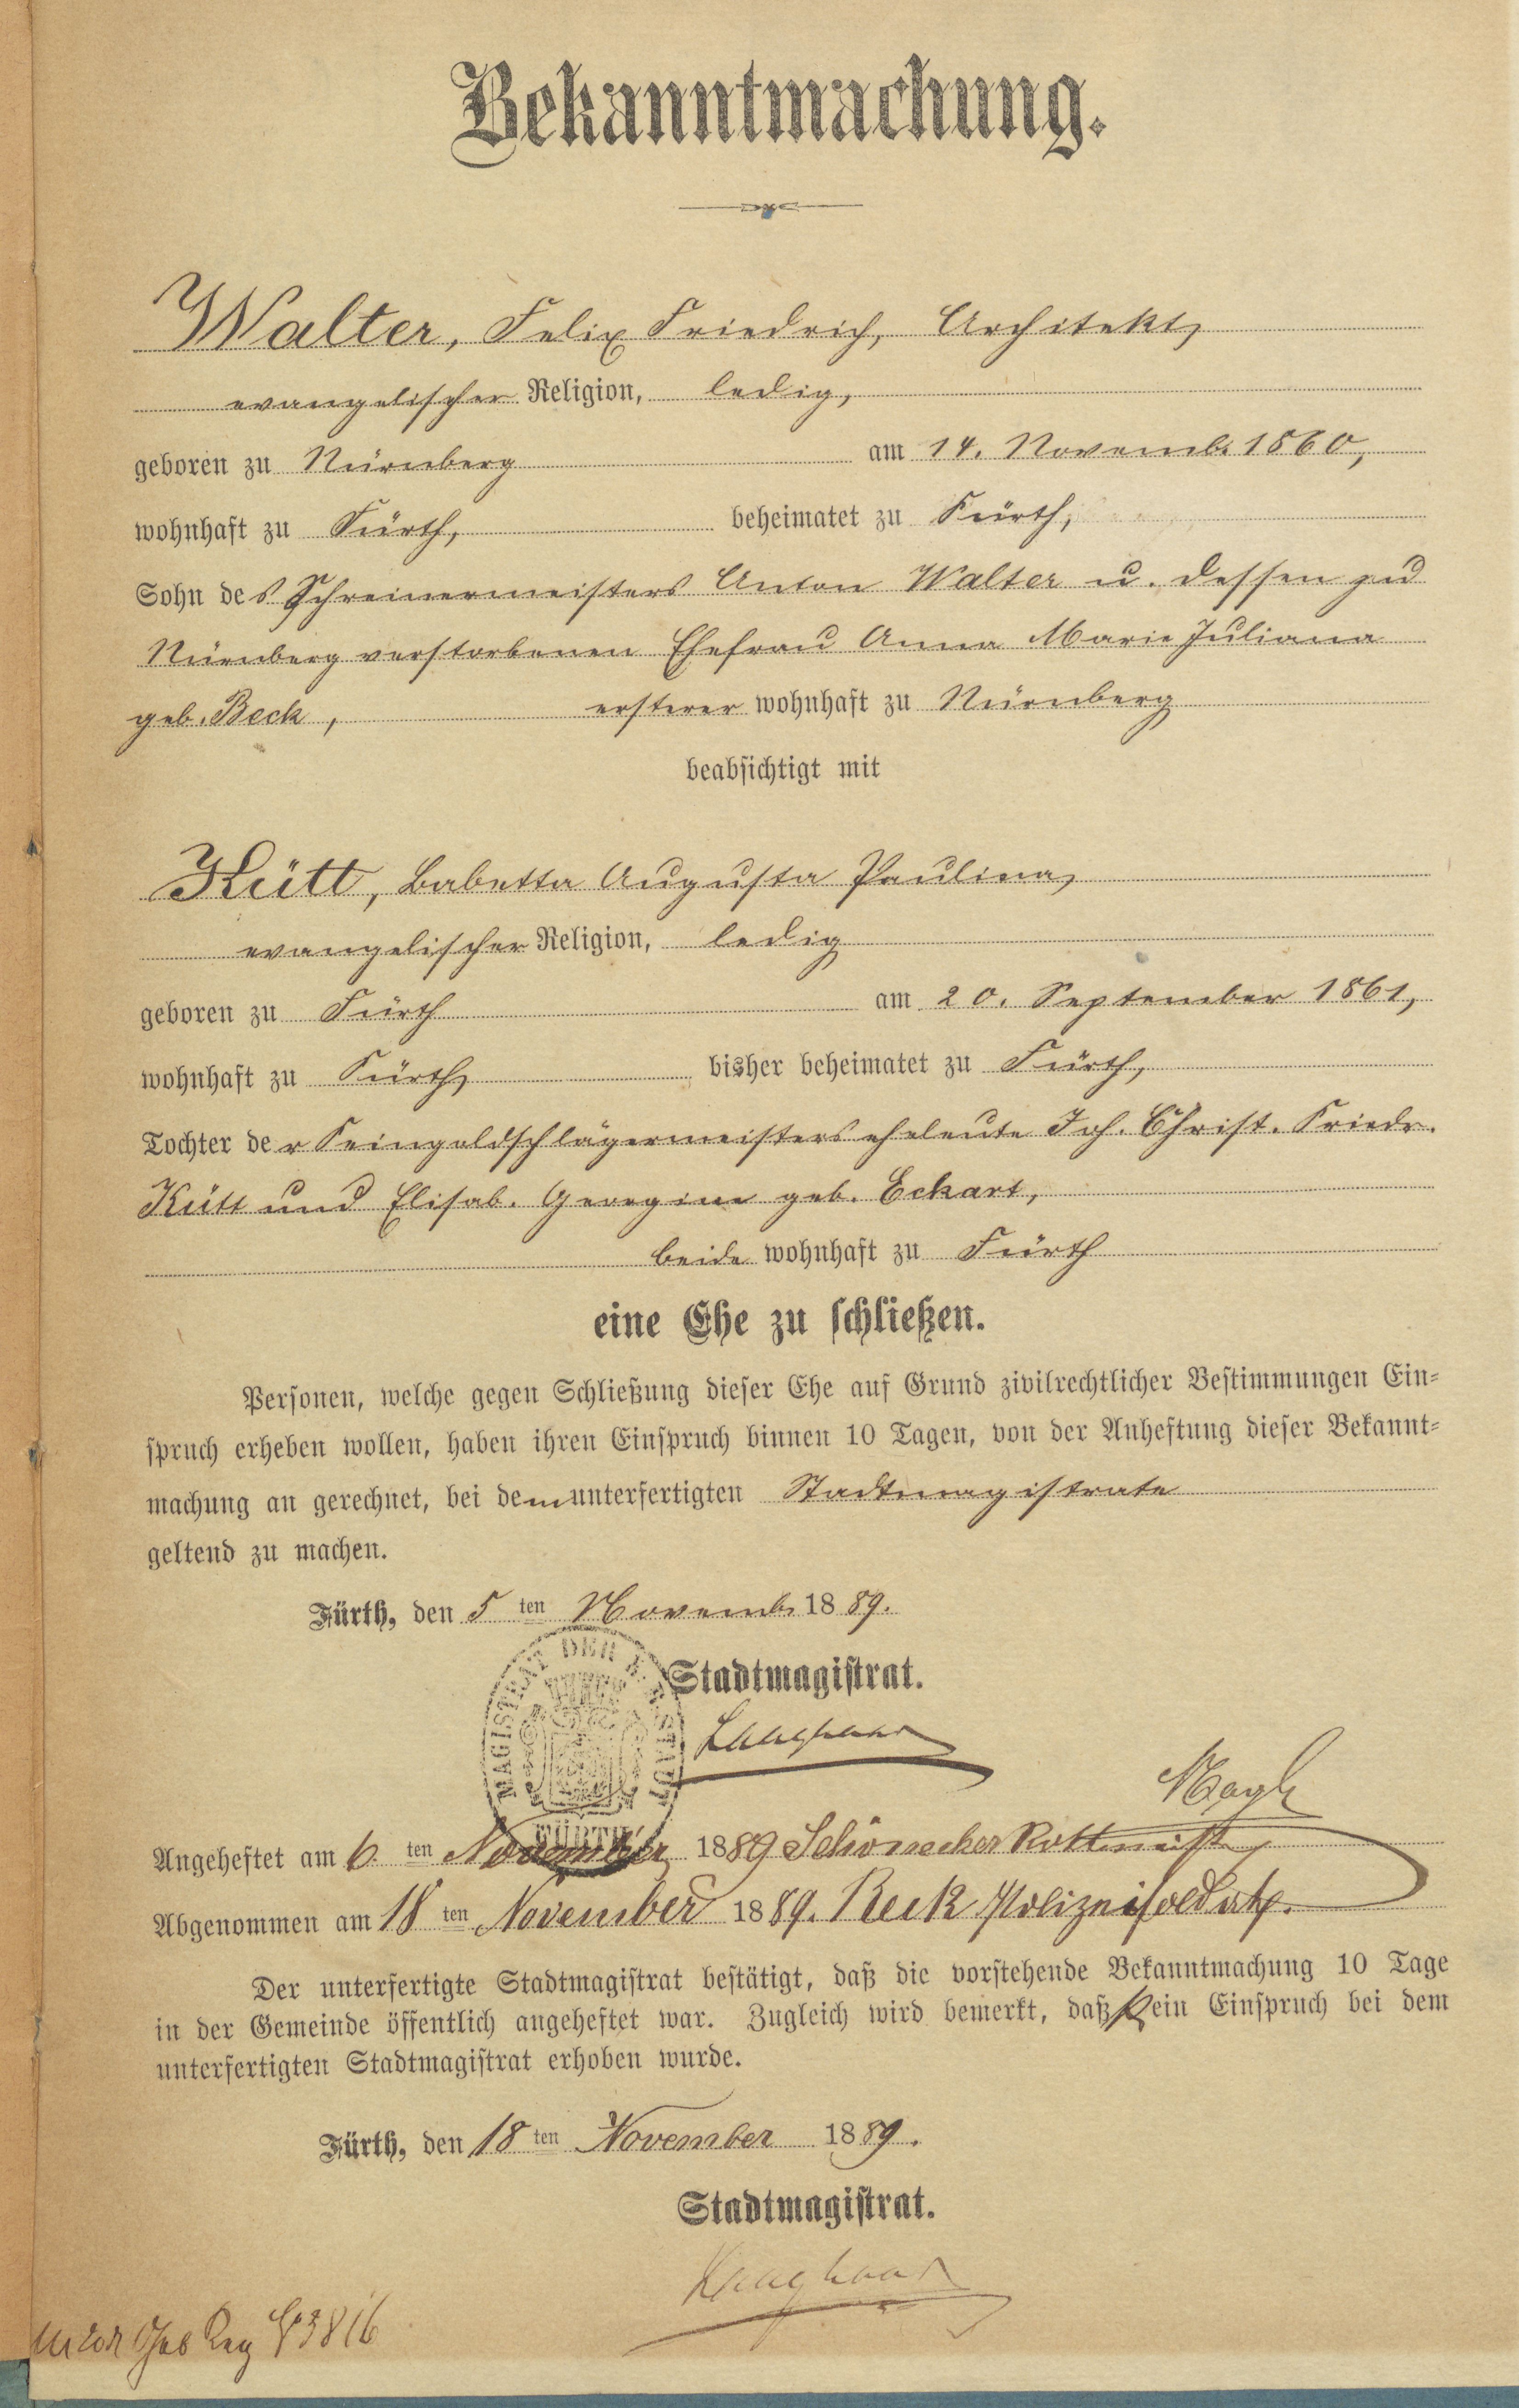 Bekanntmachung.
Walter, Felix Friedrich, Architekt,
evangelischer Religion, ledig,
geboren zu Nürnberg am 14. Novemb. 1860,
wohnhaft zu Fürth, beheimatet zu Fürth,
Sohn des Schreinermeisters Anton Walter u. dessen zu
Nürnberg verstorbenen Ehefrau Anna Marie Juliana
geb. Beck, ersterer wohnhaft zu Nürnberg
beabsichtigt mit
Kütt, Babetta Augusta Paulina,
evangelischer Religion, ledig
geboren zu Fürth am 20. September 1861,
wohnhaft zu Fürth, bisher beheimatet zu Fürth,
Tochter der Feingoldschlägermeisterseheleute Joh. Christ. Friedr.
Kütt und Elisab. Georgine geb. Eckart,
beide wohnhaft zu Fürth
eine Ehe zu schließen.
Personen, welche gegen Schließung dieser Ehe auf Grund zivilrechtlicher Bestimmungen Ein-
spruch erheben wollen, haben ihren Einspruch binnen 10 Tagen, von der Anheftung dieser Bekannt-
machung an gerechnet, bei dem unterfertigten Stadtmagistrate
geltend zu machen.
Fürth, den 5ten Novemb. 1889.
MAGISTRAT DER STADT FÜRTH
Stadtmagistrat.
Angeheftet am 6ten November 1889 Schönecker Rottmeist
Abgenommen am 18ten November 1889. Beck Polizeisoldat.
Der unterfertigte Stadtmagistrat bestätigt, daß die vorstehende Bekanntmachung 10 Tage
in der Gemeinde öffentlich angeheftet war. Zugleich wird bemerkt, daß kein Einspruch bei dem
unterfertigten Stadtmagistrat erhoben wurde.
Fürth, den 18ten November 1889.
Stadtmagistrat.